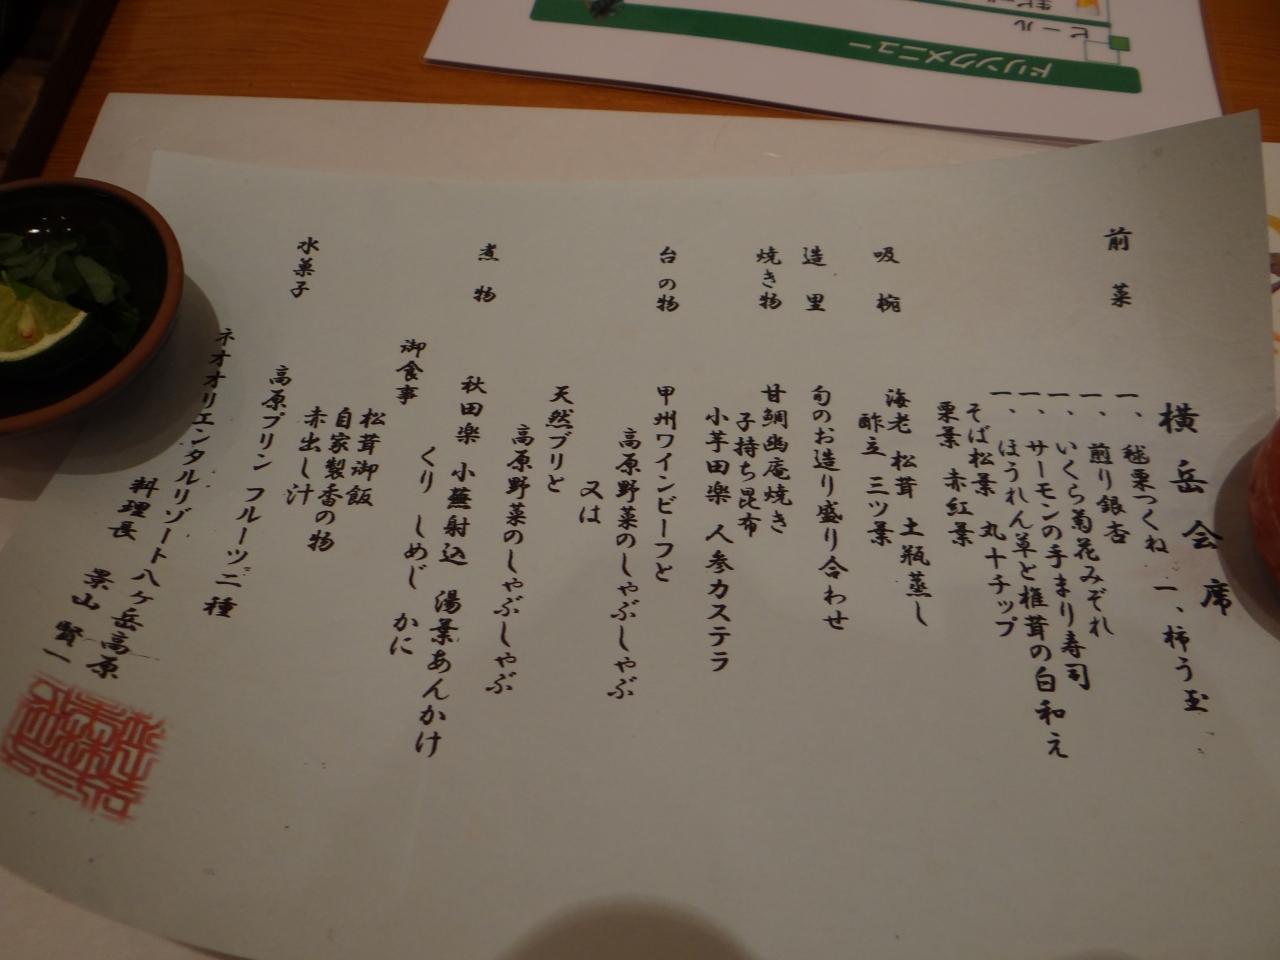 横岳会席
前菜
一、毬栗つくね 一、柿う玉
一、煎り銀杏
一、いくら菊花みぞれ
一、サーモンの手まり寿司
一、ほうれん草と椎茸の白和え
そば松葉 丸十チップ
栗葉 赤紅葉
吸椀
海老 松茸 土瓶蒸し
酢立 三ツ葉
造里
旬のお造り盛り合わせ
焼き物
甘鯛幽庵焼き
子持ち昆布
小芋田楽 人参カステラ
台の物
甲州ワインビーフと
高原野菜のしゃぶしゃぶ
又は
天然ブリと
高原野菜のしゃぶしゃぶ
煮物
秋田楽 小蕪射込 湯葉あんかけ
くり しめじ かに
御食事
松茸御飯
自家製香の物
赤出し汁
水菓子
高原プリン フルーツ二種
ネオオリエンタルリゾート八ヶ岳高原
料理長 景山 賢一
ドリンクメニュー
ビール